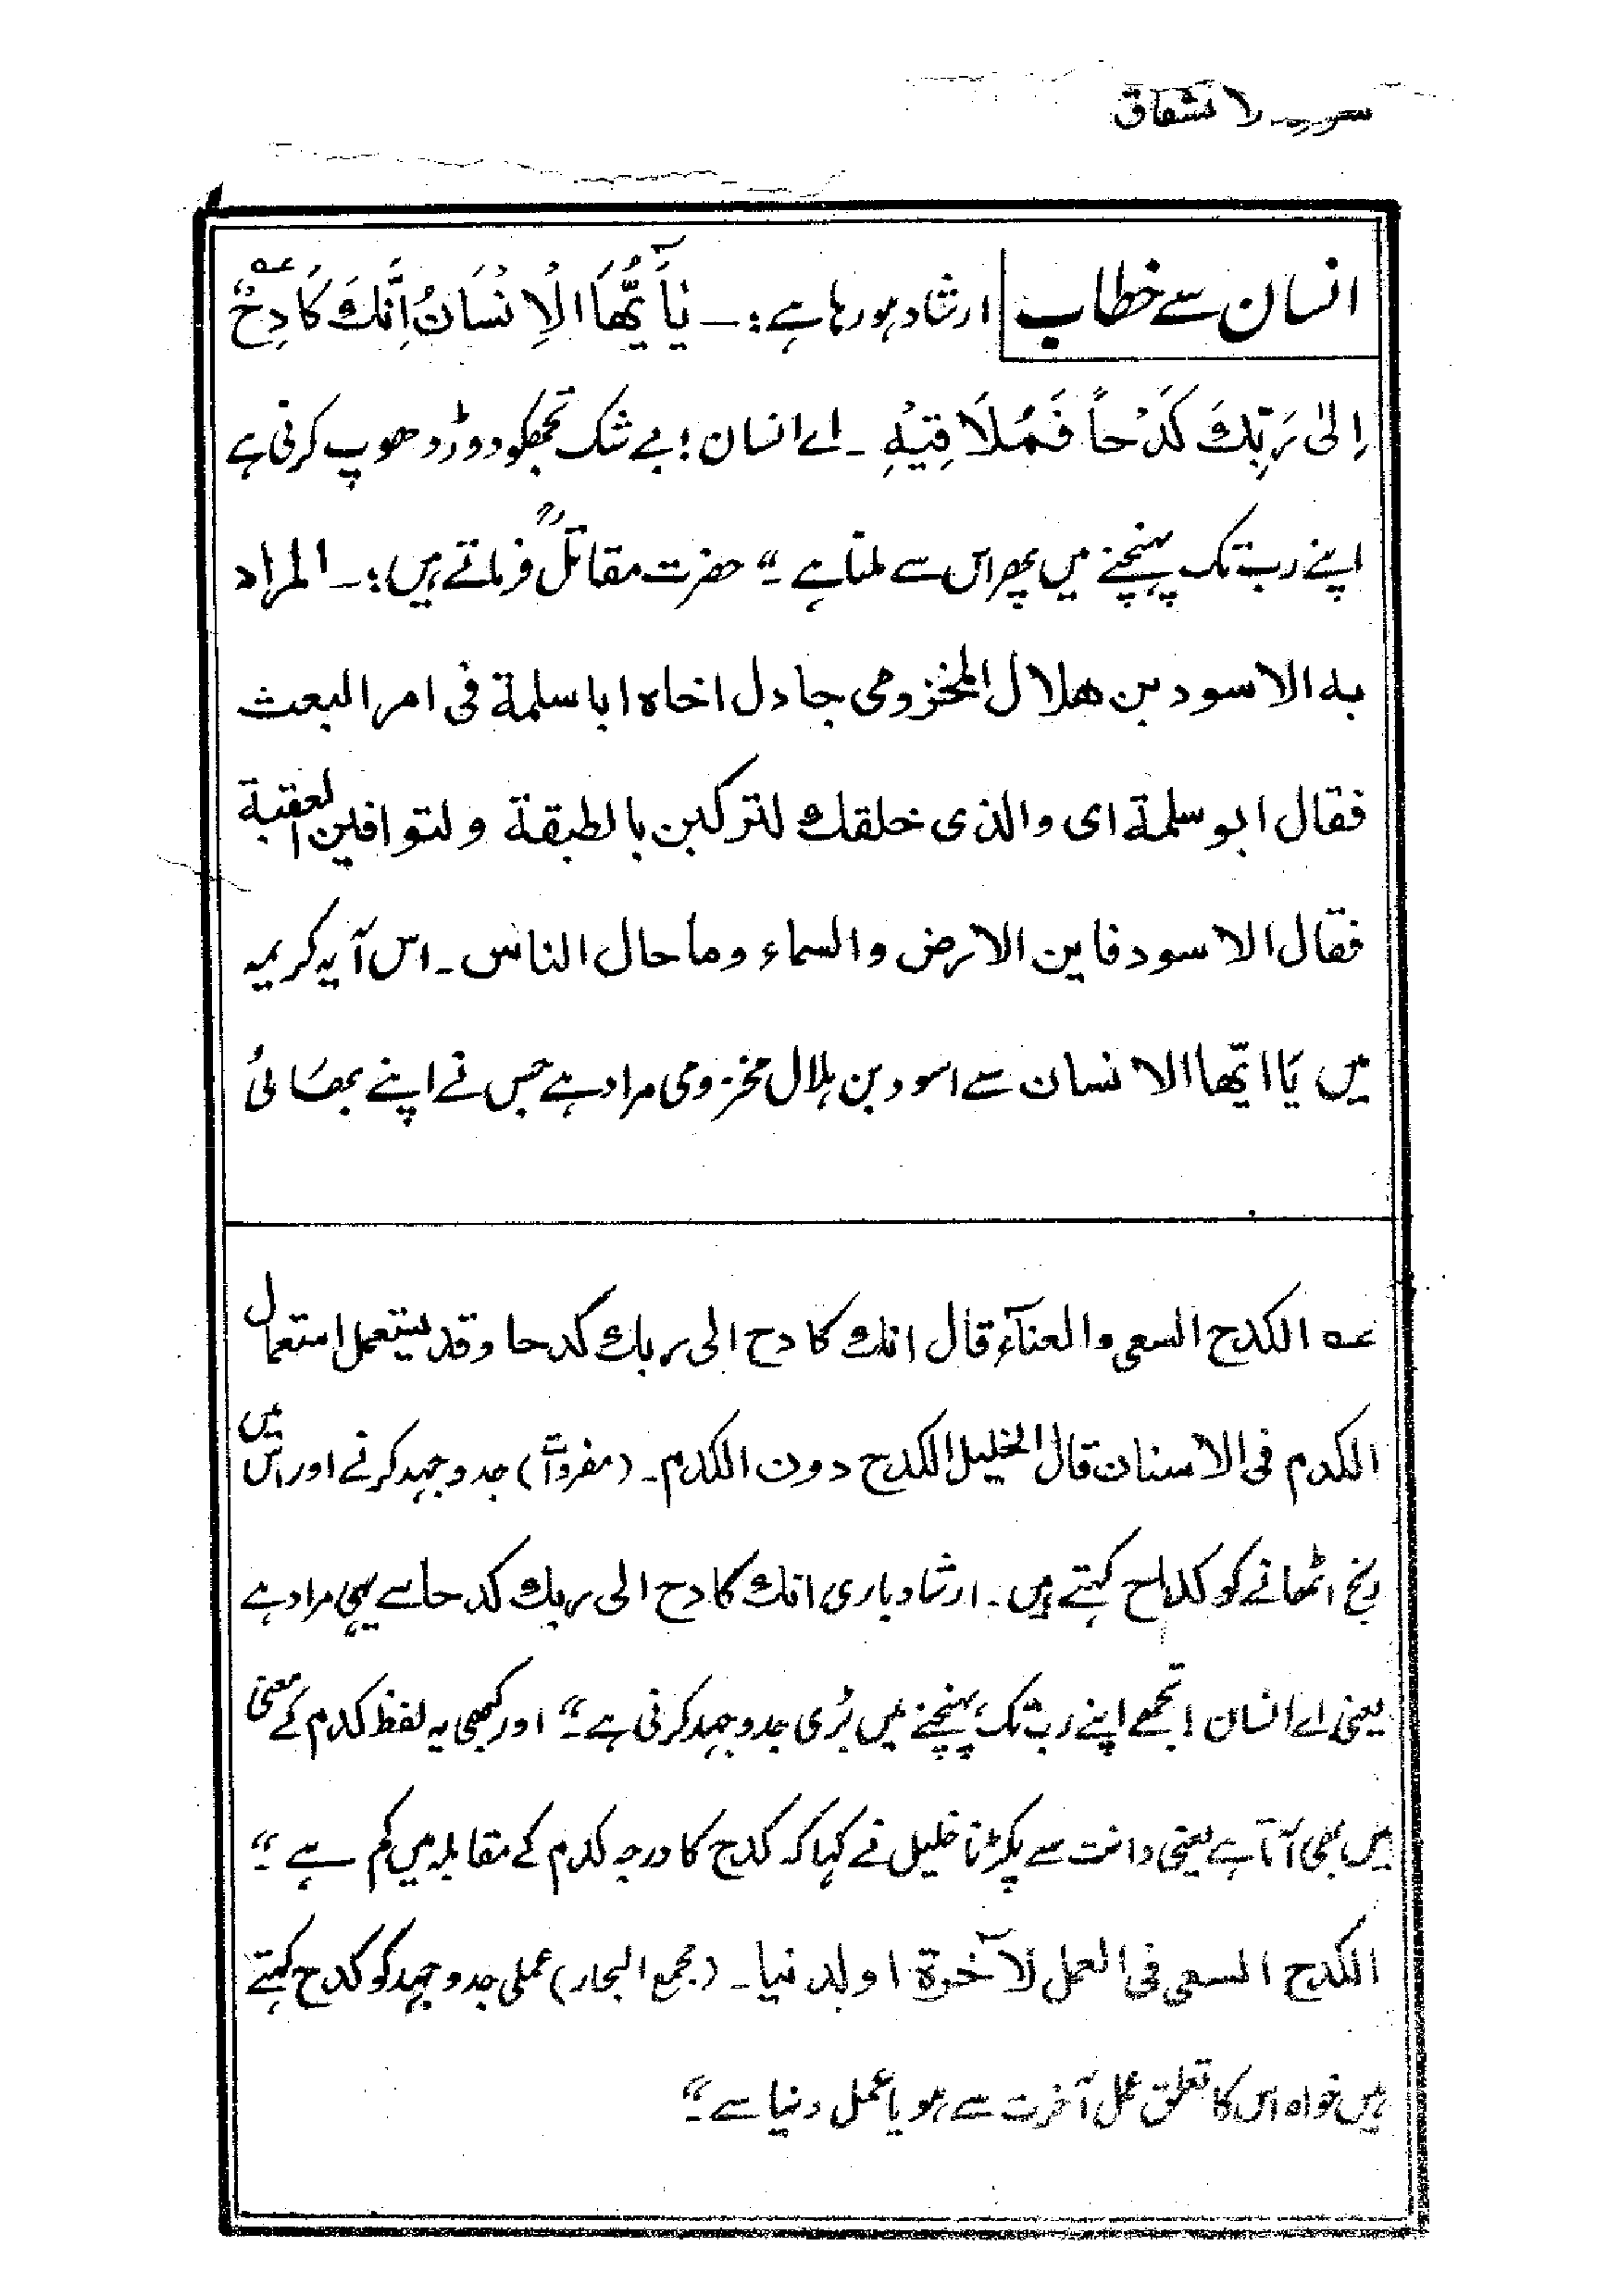 سورہ الانشقاق
انسان سے خطاب ارشاد ہو رہا ہے:۔ یٰۤاَیُّھَا الْاِنْسَانُ اِنَّكَ كَادِحٌ عہ
اِلٰی رَبِّكَ كَدْحاً فَمُلَاقِیْهِ ۔ اے انسان! بے شک تجھکو دوڑ دھوپ کرنی ہے
اپنے رب تک پہنچنے میں پھر اس سے ملنا ہے ۔“ حضرت مقاتلؒ فرماتے ہیں:۔ المراد
به الاسود بن ھلال المخزومی جادل اخاه ابا سلمة فی امر البعث
فقال ابو سلمة ای والذی خلقك لتركبن بالطبقة ولتوافين العقبة
فقال الاسود فاین الارض والسماء وما حال الناس ۔ اس آیہ کریمہ
میں یَا ایّھا الانسان سے اسود بن ہلال مخزومی مراد ہے جس نے اپنے بھائی
عہ الكدح السعی والعنآء قال انك كادح الی ربك كدحا وقد یستعمل استعمال
الكدم فی الاسنان قال الخلیل الكدح دون الكدم ۔ (مفرداً) جد و جہد کرنے اور اس میں
رنج اٹھانے کو کداح کہتے ہیں ۔ ارشاد باری انك كادح الی ربك كدحا سے یہی مراد ہے
یعنی اے انسان! تجھے اپنے رب تک پہنچنے میں بڑی جد و جہد کرنی ہے ۔“ اور کبھی یہ لفظ کدم کے معنی
میں بھی آتا ہے یعنی دانت سے پکڑنا خلیل نے کہا کہ کدح کا درجہ کدم کے مقابلہ میں کم ہے ۔“
الكدح السعی فی العمل لآخرة اولدنیا ۔ (مجمع البحار) عملی جد و جہد کو کدح کہتے
ہیں خواہ اس کا تعلق عمل آخرت سے ہو یا عمل دنیا سے ۔“